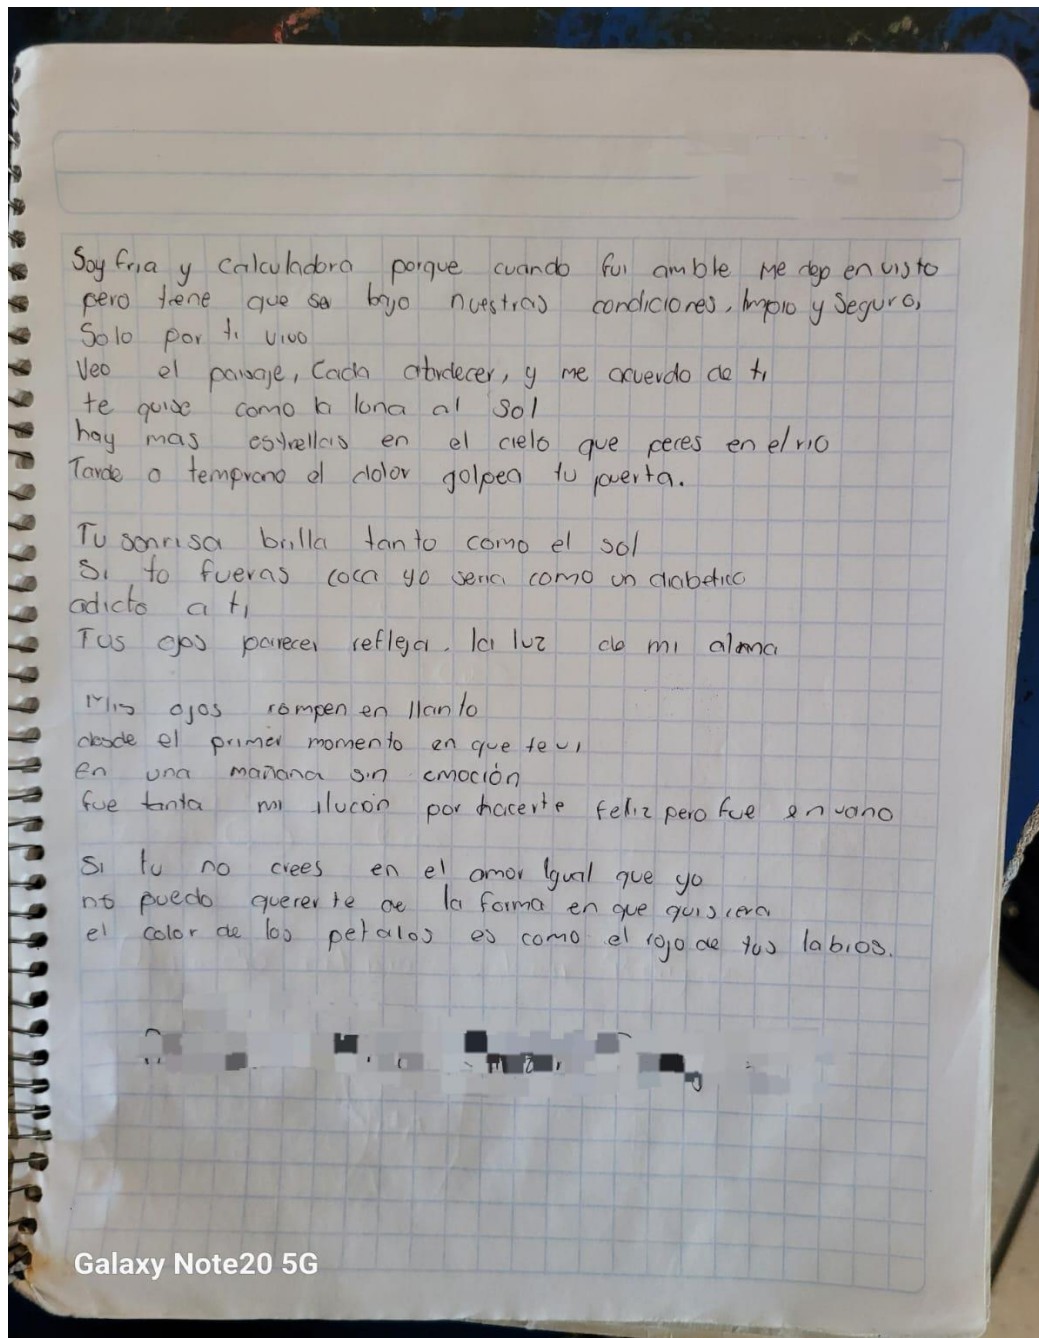 Soy fria y calculadora porque cuando fui amble me dejo en visto
pero tiene que se bajo nuestras condiciones, limpio y seguro,
Solo por ti vivo
Veo el paisaje, Cada atardecer, y me acuerdo de ti
te quise como la luna al sol
hay mas estrellas en el cielo que peces en el rio
Tarde o temprano el dolor golpea tu puerta.
Tu sonrisa brilla tanto como el sol
Si to fueras coca yo seria como un diabetico
adicto a ti
Tus ojos parecer refleja. la luz de mi alma
Mis ojos rompen en llanto
desde el primer momento en que te vi
en una mañana sin emoción
fue tanta mi ilucón por hacerte feliz pero fue en vano
Si tu no crees en el amor Igual que yo
no puedo quererte de la forma en que quisiera
el color de los petalos es como el rojo de tus labios.
Galaxy Note20 5G